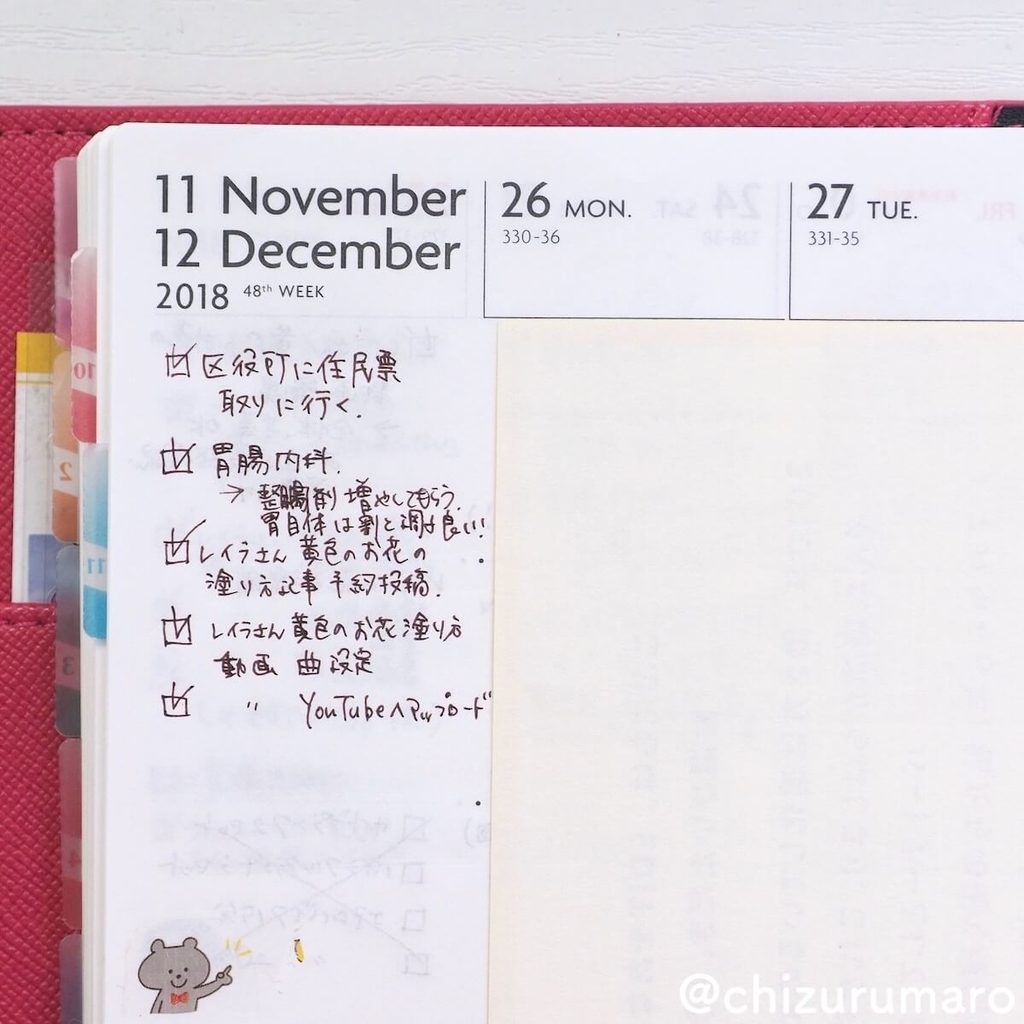 11 November
12 December
2018 48th WEEK
26 MON.
330-36
27 TUE.
331-35
☑ 区役所に住民票
取りに行く.
☑ 胃腸内科.
→ 整腸剤増やしてもらう.
胃自体は割と調子良い!
☑ レイラさん 黄色のお花の
塗り方記事 予約投稿.
☑ レイラさん 黄色のお花塗り方
動画 曲設定
☑ 〃 YouTubeへアップロード
10
11
@chizurumaro